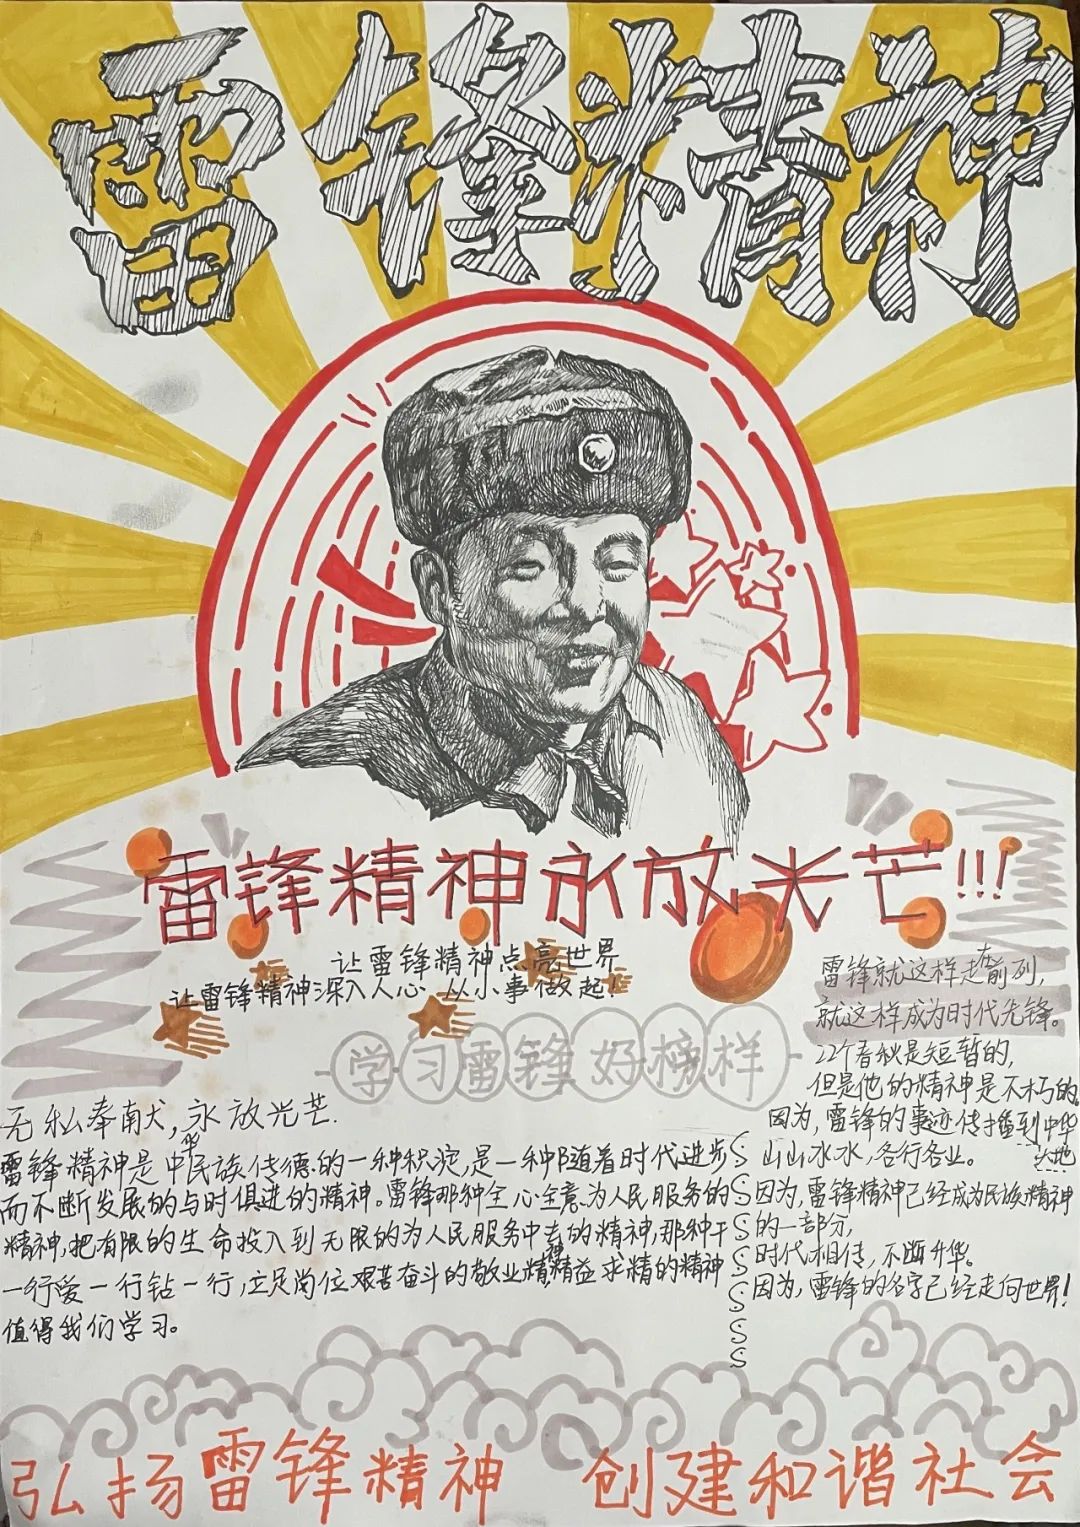 雷锋精神
雷锋精神永放光芒!!!
让雷锋精神点亮世界
让雷锋精神深入人心 从小事做起!
学习雷锋好榜样
无私奉献,永放光芒.
雷锋精神是中华民族传德的一种积淀,是一种随着时代进步
而不断发展的与时俱进的精神。雷锋那种全心全意为人民服务的
精神,把有限的生命投入到无限的为人民服务中去的精神,那种干
一行爱一行钻一行,立足岗位艰苦奋斗的敬业精神精益求精的精神
值得我们学习。
雷锋就这样走在前列,
就这样成为时代先锋。
22个春秋是短暂的,
但是他的精神是不朽的
因为,雷锋的事迹传播到中华大地
山山水水,各行各业。
因为,雷锋精神已经成为民族精神
的一部分,
时代相传,不断升华。
因为,雷锋的名字已经走向世界!
弘扬雷锋精神 创建和谐社会